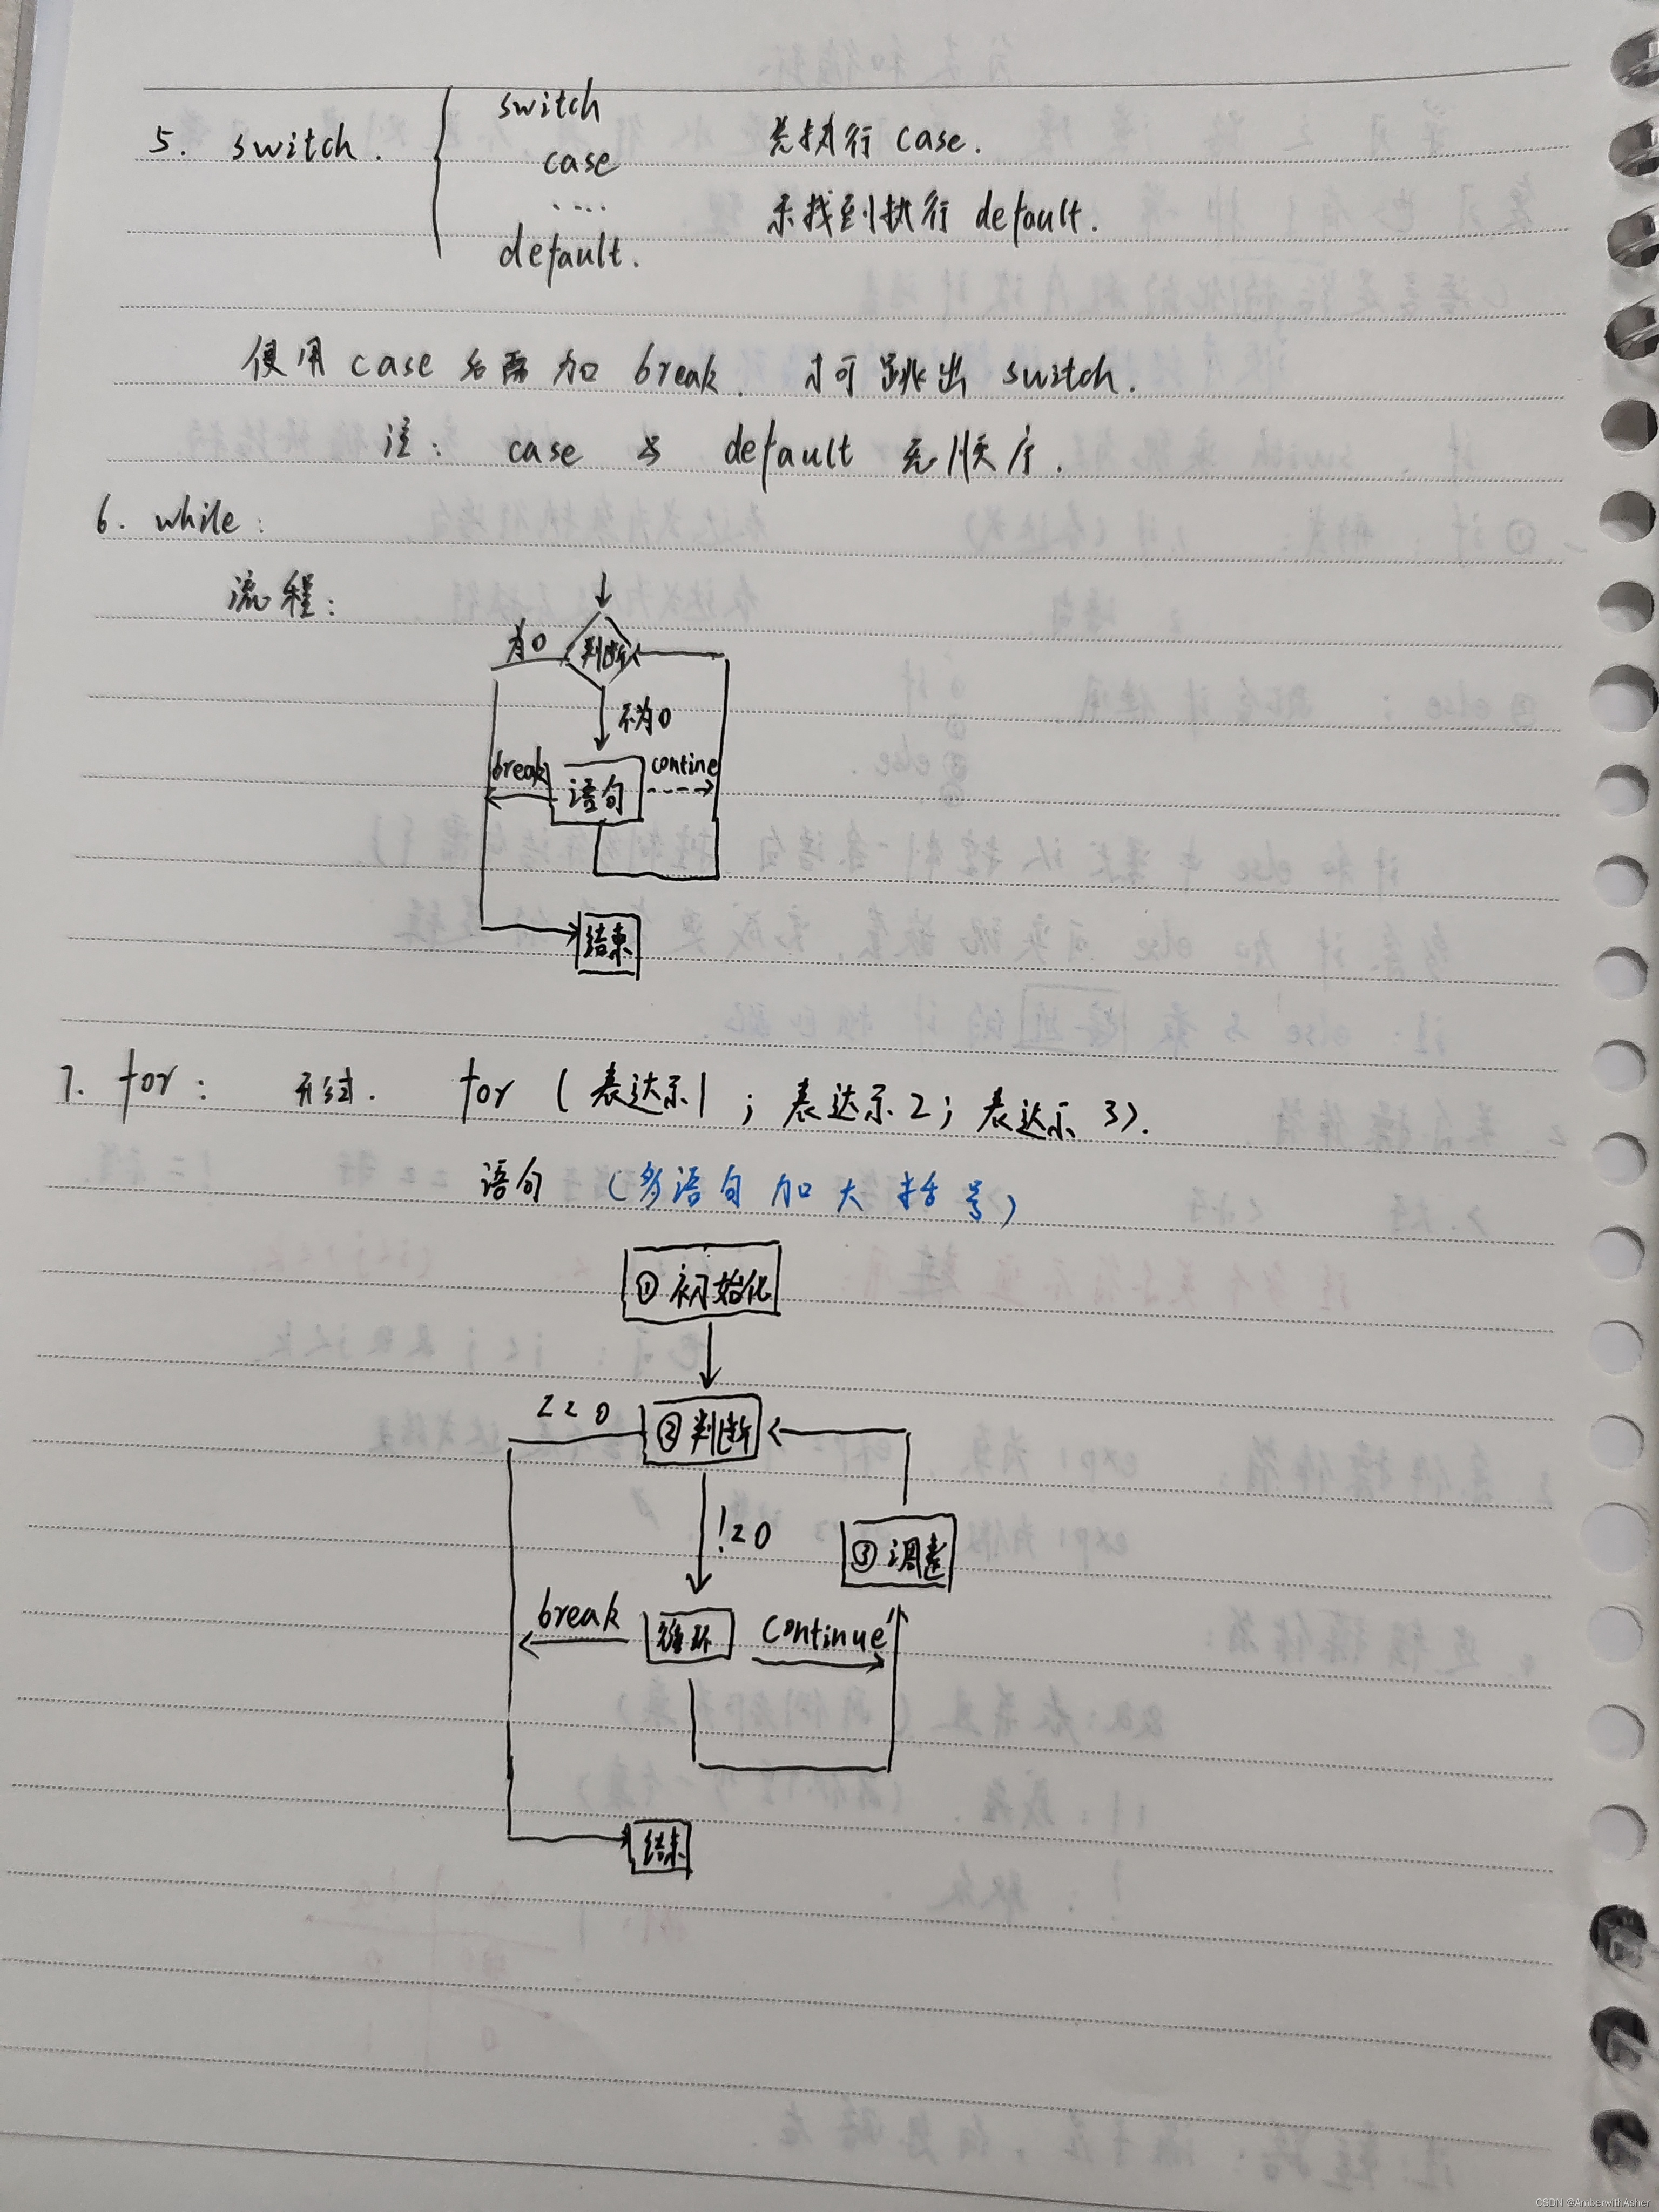 5. switch.
switch
case
....
default.
先执行 case.
未找到执行 default.
使用 case 后面加 break. 才可跳出 switch.
注: case 与 default 无顺序.
6. while:
流程:
判断
为0
不为0
break
语句
contine
结束
7. for: 形式. for (表达示1; 表达示2; 表达示3).
语句 (多语句加大括号)
① 初始化
==0 ② 判断
!=0
③ 调整
break 循环 continue
结束
CSDN @AmberwithAsher